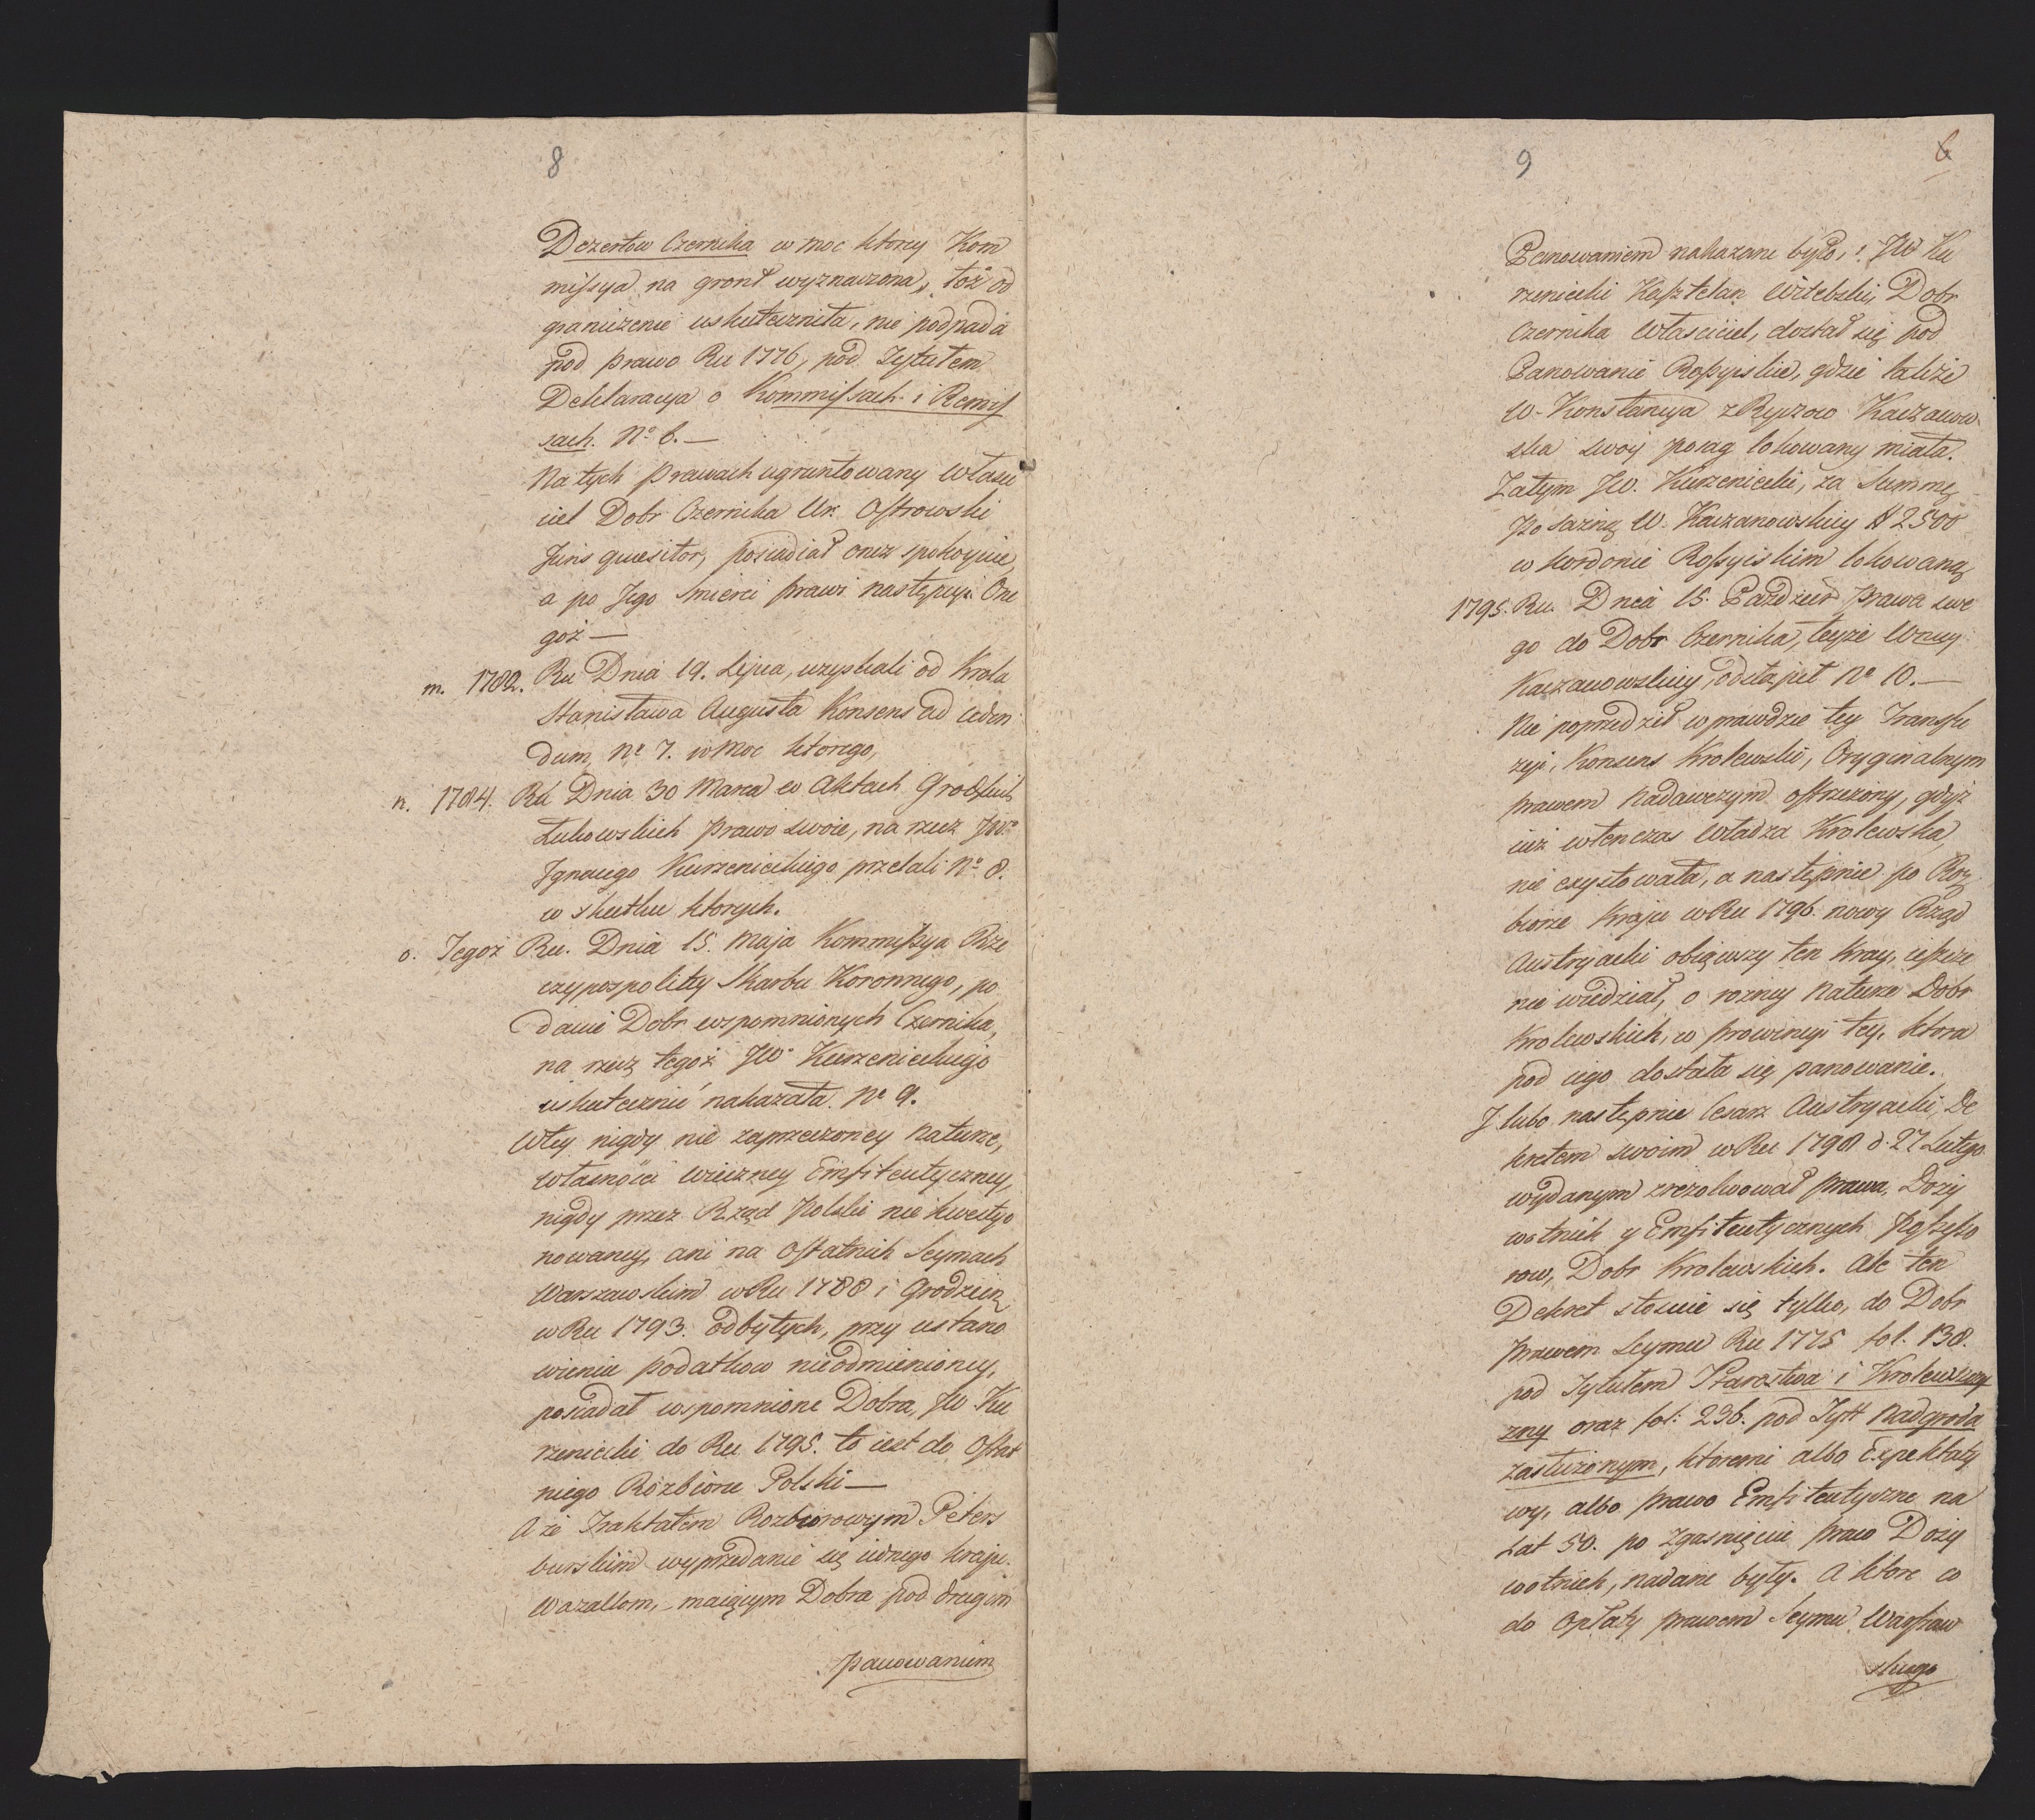 8
Dezertow Czernika w moc ktorey Kom
missya na gront wyznaczona, toż od
graniczenie uskuteczniła, nie podpada
pod prawo Ru 1776, pod Tytułem
Deklaracya o Kommissach i Remis
sach. No 6. —
Na tych Prawach ugruntowany Właści
ciel Dobr Czernika Ur. Ostrowski
Juris quesitor, posiadał onez spokoynie,
a po Jego Smierci prawi następcy One
goż —
m. 1782. Ru Dnia 19. Lipca, uzyskali od Krola
Stanisława Augusta Konsens ad ceden
dum, No 7. w moc ktorego,
n. 1784. Ru Dnia 30 Marca w Aktach Grodzkich
Łukowskich prawo swoie, na rzecz JW.
Ignacego Kurzenieckiego przelali No 8.
w skutku ktorych.
o. Tegoż Ru. Dnia 15. Maja Kommissya Rze
czypospolitey Skarbu Koronnego, po
danie Dobr wspomnionych Czernika,
na rzecz tegoż JW. Kurzenieckiego
uskutecznić nakazała. No 9.
W tey nigdy nie zaprzeczoney naturze,
własności wieczney Emfiteutyczney,
nigdy przez Rząd Polski nie kwestyo
nowaney, ani na Ostatnich Seymach
Warszawskim w Ru 1788 i Grodzień
w Ru 1793. odbytych, przy ustano
wieniu podatkow nieodmienioney,
posiadał wspomnione Dobra, JW Ku
rzeniecki do Ru 1795. to iest do Ostat
niego Rozbioru Polski —
A że Traktatem Rozbiorowym Peters
burskim wyprzedanie się iednego kraju
Wazallom, maiącym Dobra pod drugim
panowaniem
9
6
Panowaniem nakazane było, i JW Ku
rzeniecki Kasztelan Witebski, Dobr
Czernika Właściciel, dostał się pod
Panowanie Rossyiskie, gdzie także
W. Konstancya z Ryczow Kaczanow
ska swoy posag lokowany miała.
Zatym JW. Kurzeniecki, za Summę
Posażną W. Kaczanowskiey # 2500
w kordonie Rossyiskim lokowaną
1795. Ru. Dnia 15. Paździer Prawa swe
go do Dobr Czernika, teyże W.
Kaczanowskiey, odstąpił No 10. —
Nie poprzedził wprawdzie tey Transfu
zyi, Konsens Krolewski, Oryginalnym
prawem Nadawczym ostrzeżony, gdyż
iuż wtenczas Władza Krolewska,
nie exystowała, a następnie po Roz
biorze Kraju w Ru 1796. nowy Rząd
Austryacki obiąwszy ten Kray, ieszcze
nie wiedział, o rożney Naturze Dobr
Krolewskich, w prowincyi tey, ktora
pod iego dostała się panowanie.
J lubo następnie Cesarz Austryacki, De
kretem swoim w Ru 1798 d. 27 Lutego
wydanym zrezolwował prawa, Doży
wotnich y Emfiteutycznych Posseso
row, Dobr Krolewskich. Ale ten
Dekret stosuie się tylko, do Dobr
prawem Seymu Ru 1775 fol. 138.
pod Tytułem Starostwa i Krolewszcz
zny oraz fol: 236. pod Tytt Nadgroda
zasłużonym, ktoremi albo Expektaty
wy, albo prawo Emfiteutyczne na
Lat 50. po Zgaśnięciu praw Doży
wotnich, nadane były. A ktore co
do Opłaty prawem Seymu Warszaw
skiego